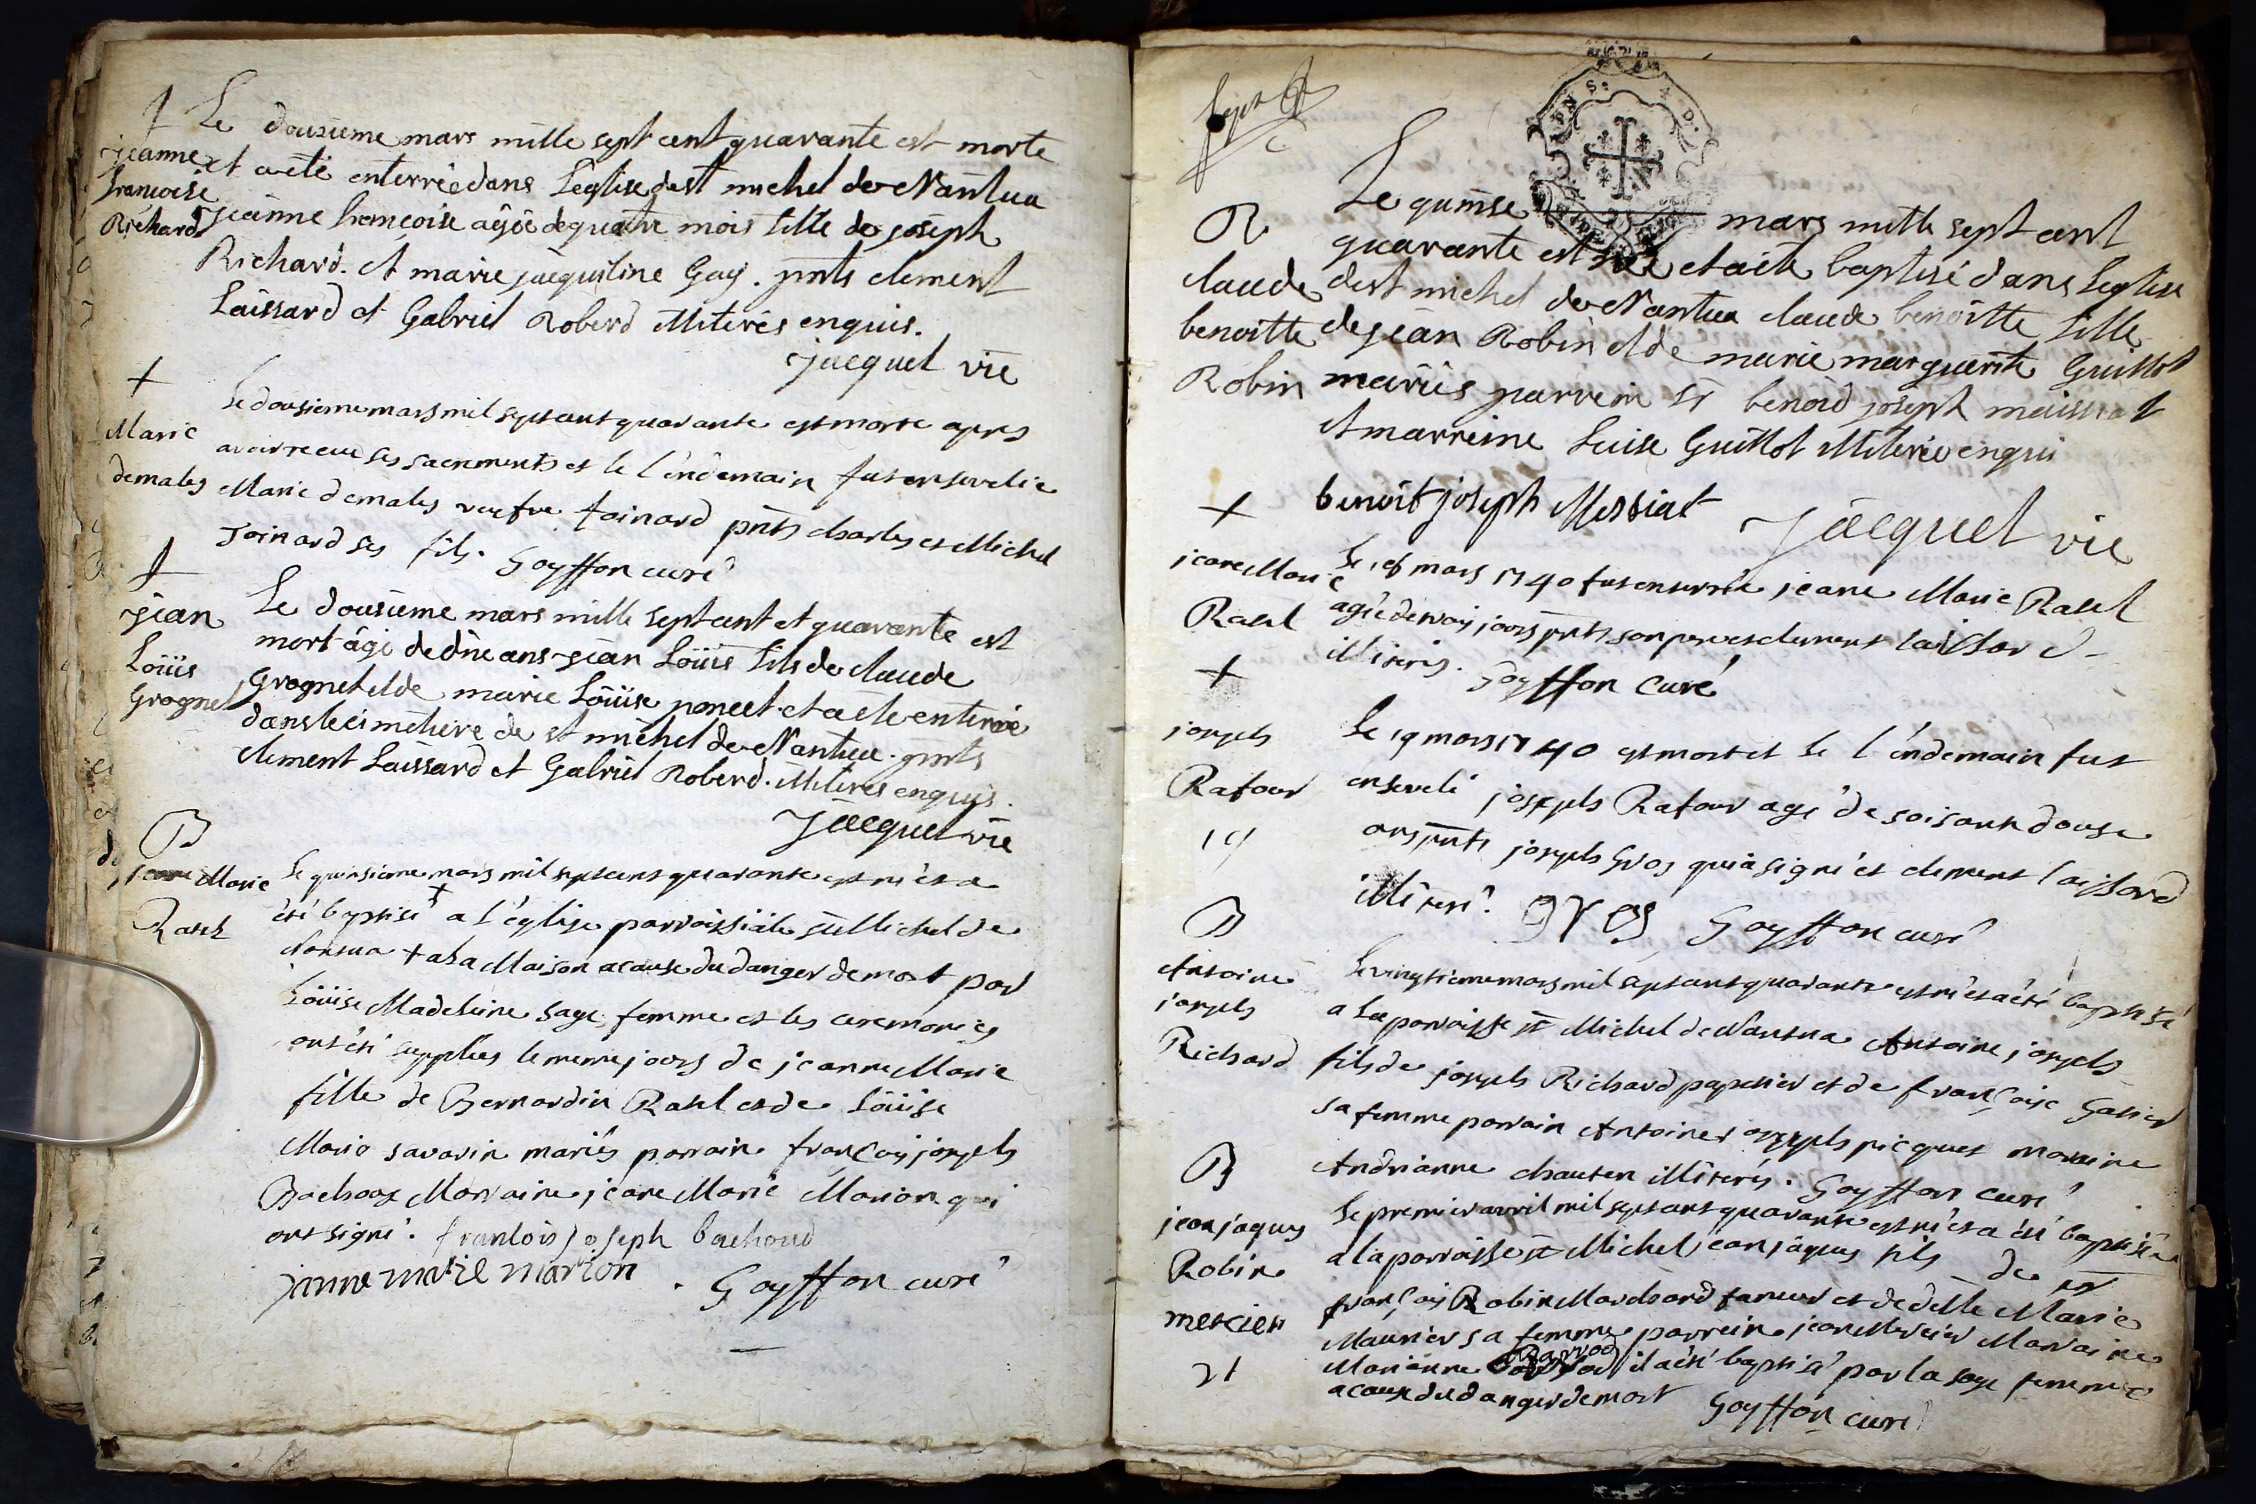 Le dousieme mars mille sept cent quarante est morte
jeanne francoise Richard
et a eté enterrée dans L'eglise de st michel de Nantua
jeanne françoise agée de quatre mois fille de joseph
Richard. et marie jacqueline Gay. pnts clement
Laissard et Gabriel Roberd illiterés enquis.
jacquet vic
+
Marie demales
Le dousieme mars mil sept cent quarante est morte apres
avoir receu ses sacrements et le l'endemain fut ensevelie
Marie demales veufve Joinard pnts charles et Michel
Joinard ses fils. Goyffon curé
+
jean Loüis Grognet
Le dousieme mars mille sept cent et quarante est
mort âgé de dix ans jean Loüis fils de claude
Grognet et de marie Loüise poncet et a ete enterré
dans le cimetiere de st michel de Nantua. pnts
clement Laissard et Gabriel Roberd. illiteres enquis.
Jacquet vic
B
jeane Marie Ravel
Le quinsieme mars mil sept cent quarante est née et a
été baptisé + a l'église parroissiale st Michel de
Nantua + a la Maison a cause du danger de mort par
Loüise Madeleine sage femme et les ceremonies
ont été supplées le meme jours de jeanne Marie
fille de Bernardin Ravel et de Loüise
Marie savarin mariés parrain françois joseph
Bachoux Marraine jeane Marie Marion qui
ont signé. francois joseph bachoud
janne marie marion. Goyffon curé
Le quinse mars mille sept cent
B
quarante est née et a été baptisé dans l'eglise
claude benoitte Robin
de st michel de Nantua claude benoitte fille
de jean Robin et de marie marguerite Guillot
mariés parrein sr benoid joseph maissiat
et marreine Luise Guillot illiterée enquis
benoit joseph Messiat Jacquet vic
+
jeane Marie Ravel
Le 16 mars 1740 fut enterrée jeane Marie Ravel
agée de trois jours pnts son pere et clement laissard
illiterés. Goyffon Curé
+
joseph Rafour
19
Le 19 mars 1740 est mort et le l'endemain fut
enseveli joseph Rafour agé de soisante douse
ans pnts joseph Gros qui a signé et clement laissard
illiteré. gros Goyffon curé
B
Antoine joseph Richard
Le vingtieme mars mil sept cent quarante est né et a été baptisé
a la parroisse st Michel de Nantua Antoine joseph
fils de joseph Richard papetier et de françoise
sa femme parrain Antoine joseph picquet maraine
Andrianne chauten illiterés. Goyffon curé
B
jean jaques Robin
mercier
21
Le premier avril mil sept cent quarante est né et a été baptisé
a la parroisse st Michel jean jâques fils de sr
françois Robin Marchand taneur et de delle Marie
Maunier sa femme parrein jean Mercier Marraine
Marianne Barrod il a été baptisé par la sage femme
a cause du danger de mort Goyffon curé